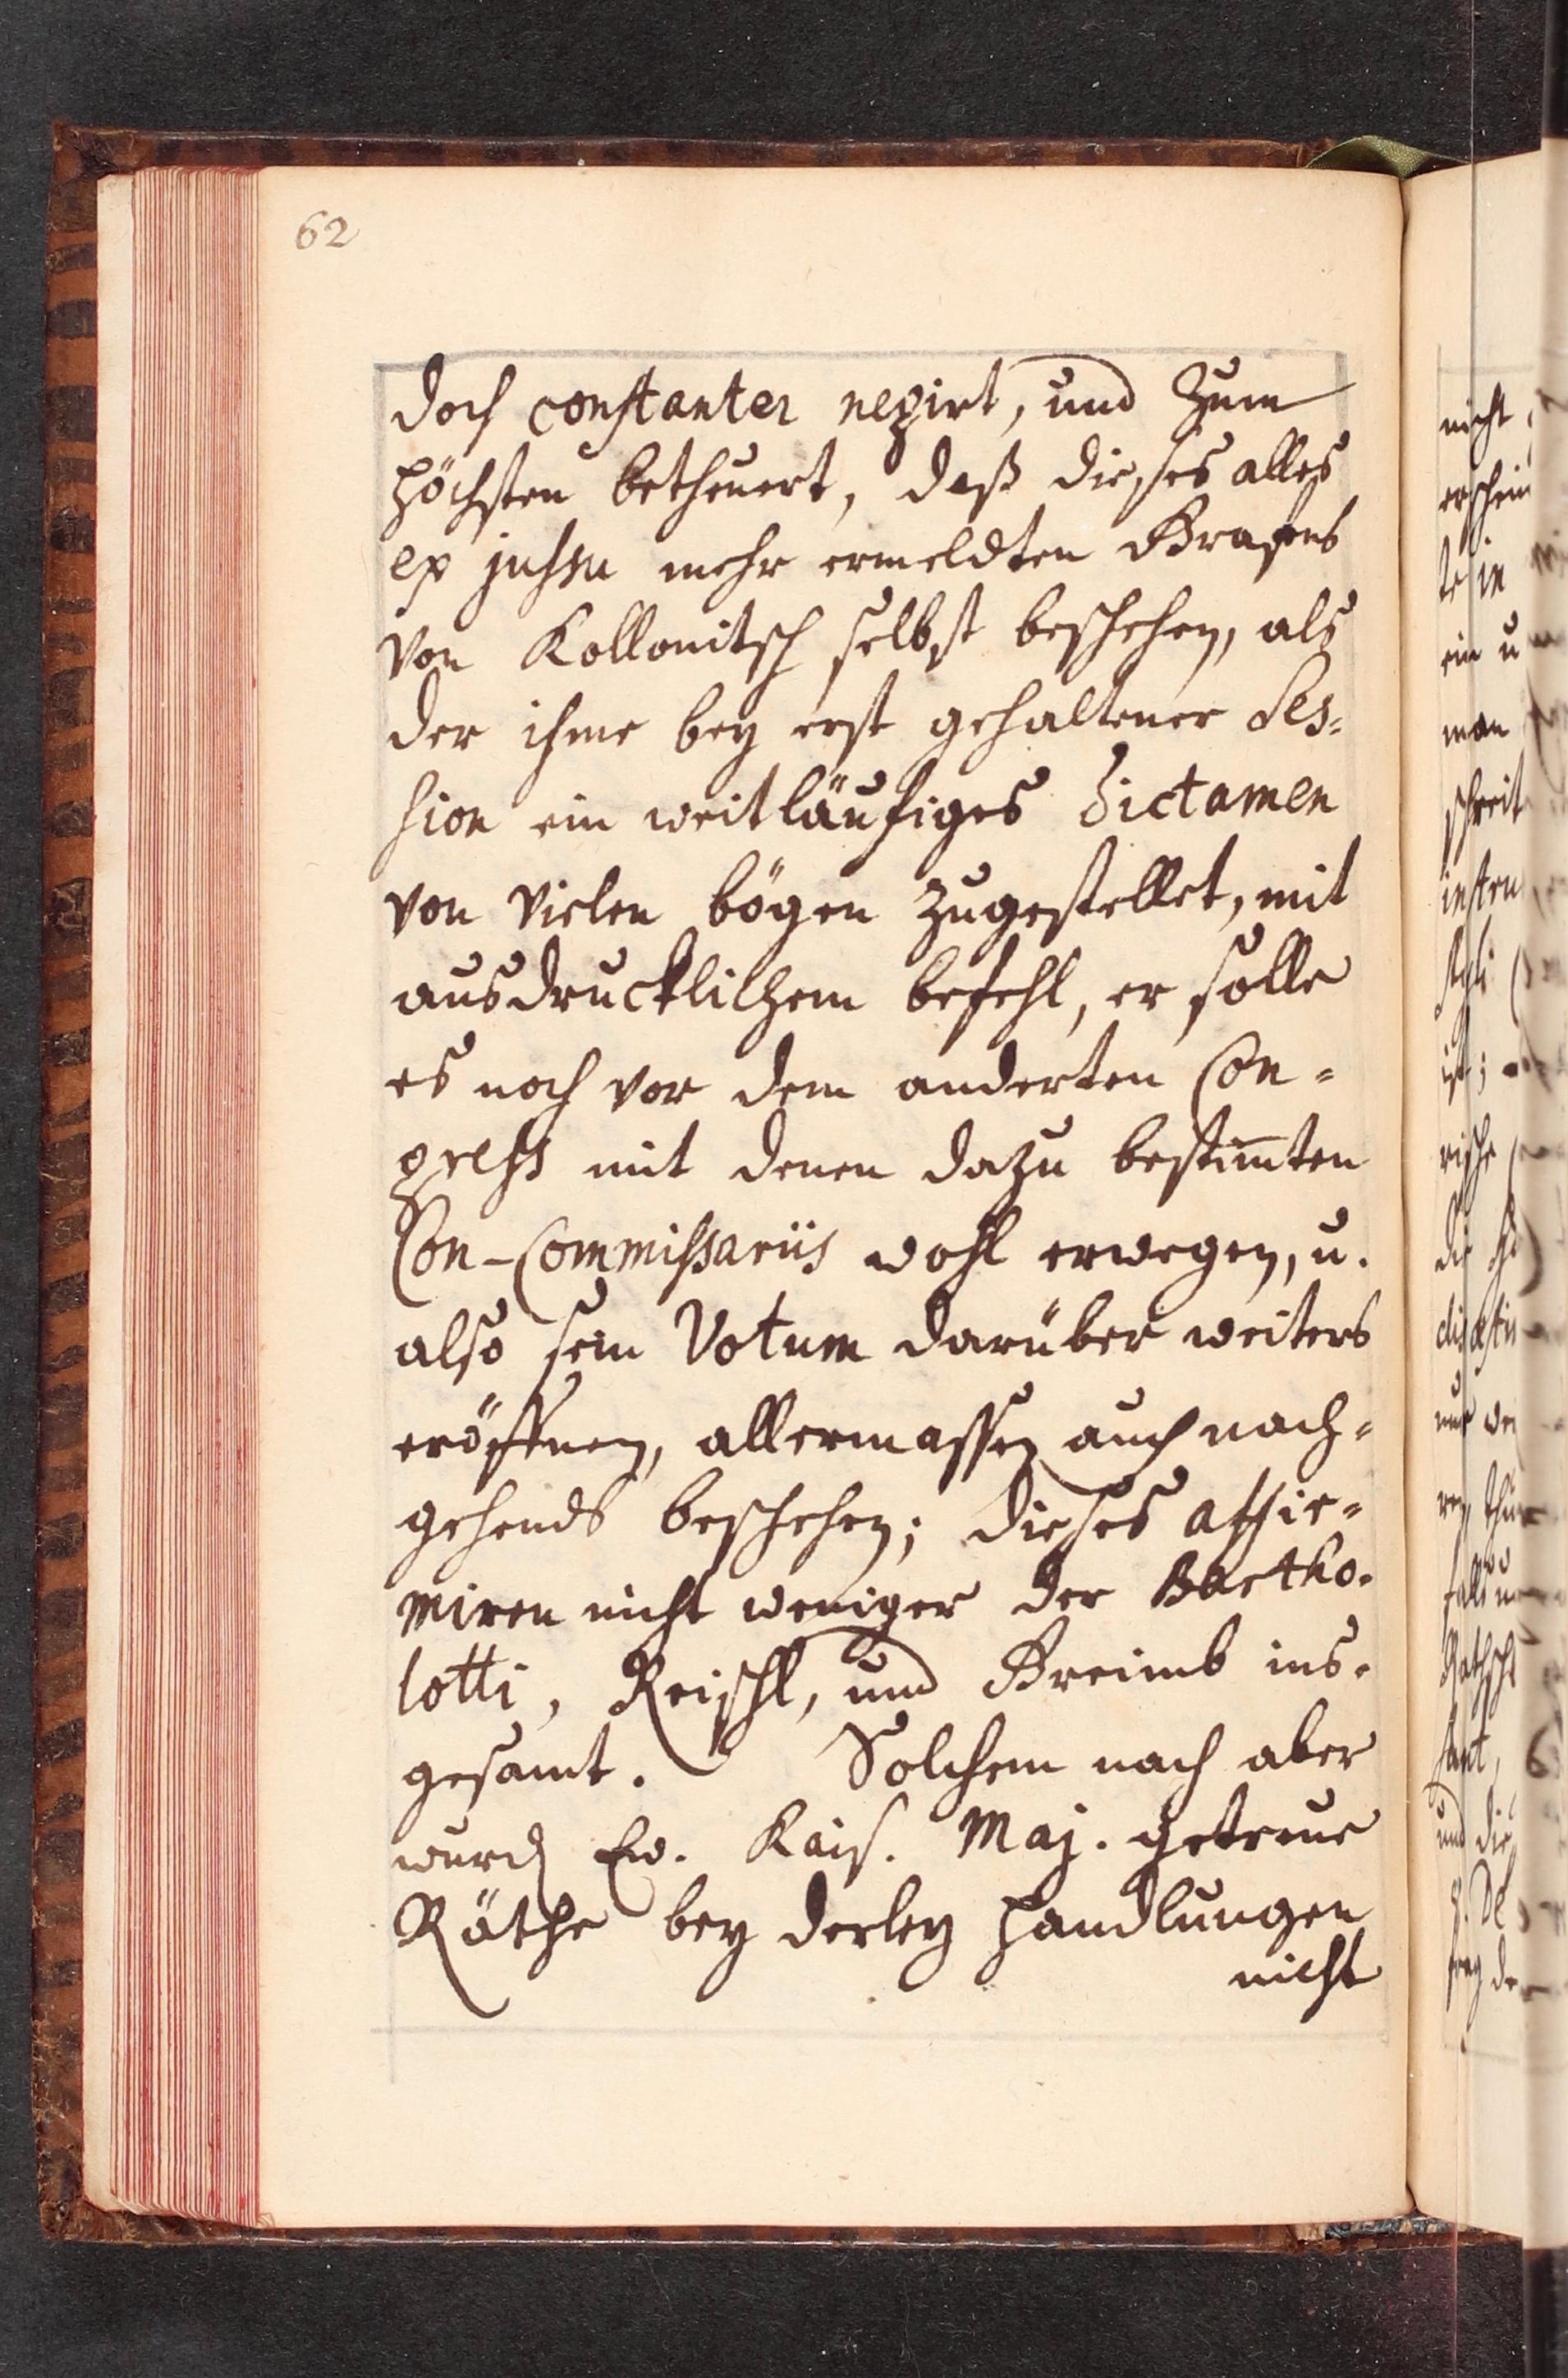 62
doch constanter negirt, und zum
höchsten betheuert, daß dieses alles
ex jussu mehr ermeldten Grafens
von Kollonitsch selbst beschehen, als
der ihme bey erst gehaltener Ses=
sion ein weitläufiges Dictamen
von vielen bögen zugestellet, mit
ausdrucklichem befehl, er solle
es noch vor dem anderten Con=
gress mit denen dazu bestim̄ten
Con-Commissariis wohl erwegen, u.
also sein Votum darüber weiters
eröffnen, allermassen auch nach=
gehends beschehen; dieses affir=
miren nicht weniger der Bartho=
lotti, Reischl, und Greimb ins=
gesamt. Solchem nach aber
wurd Ew. Kais. Maj. getreue
Räthe bey derley handlungen
nicht
nicht
erschein
man